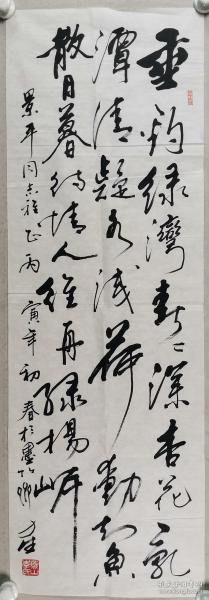 垂钓绿湾春春深杏花乱
潭清疑水浅荷动知鱼
散日暮待情人维舟绿杨岸
景平同志雅正丙寅年初春于墨